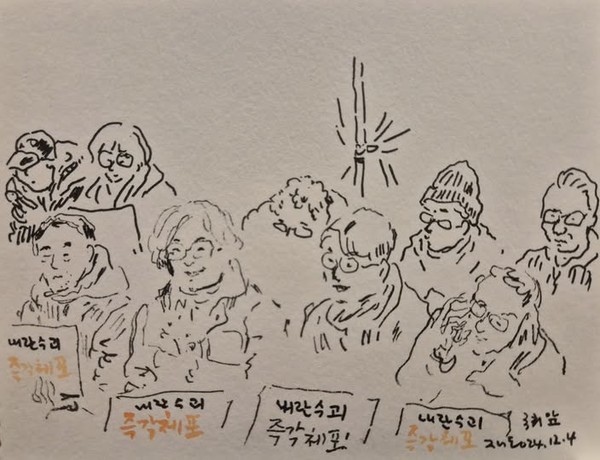 내란수괴
즉각체포
내란수괴
즉각체포
내란수괴
즉각체포!
내란수괴
즉각체포
국회 앞
2024.12.4